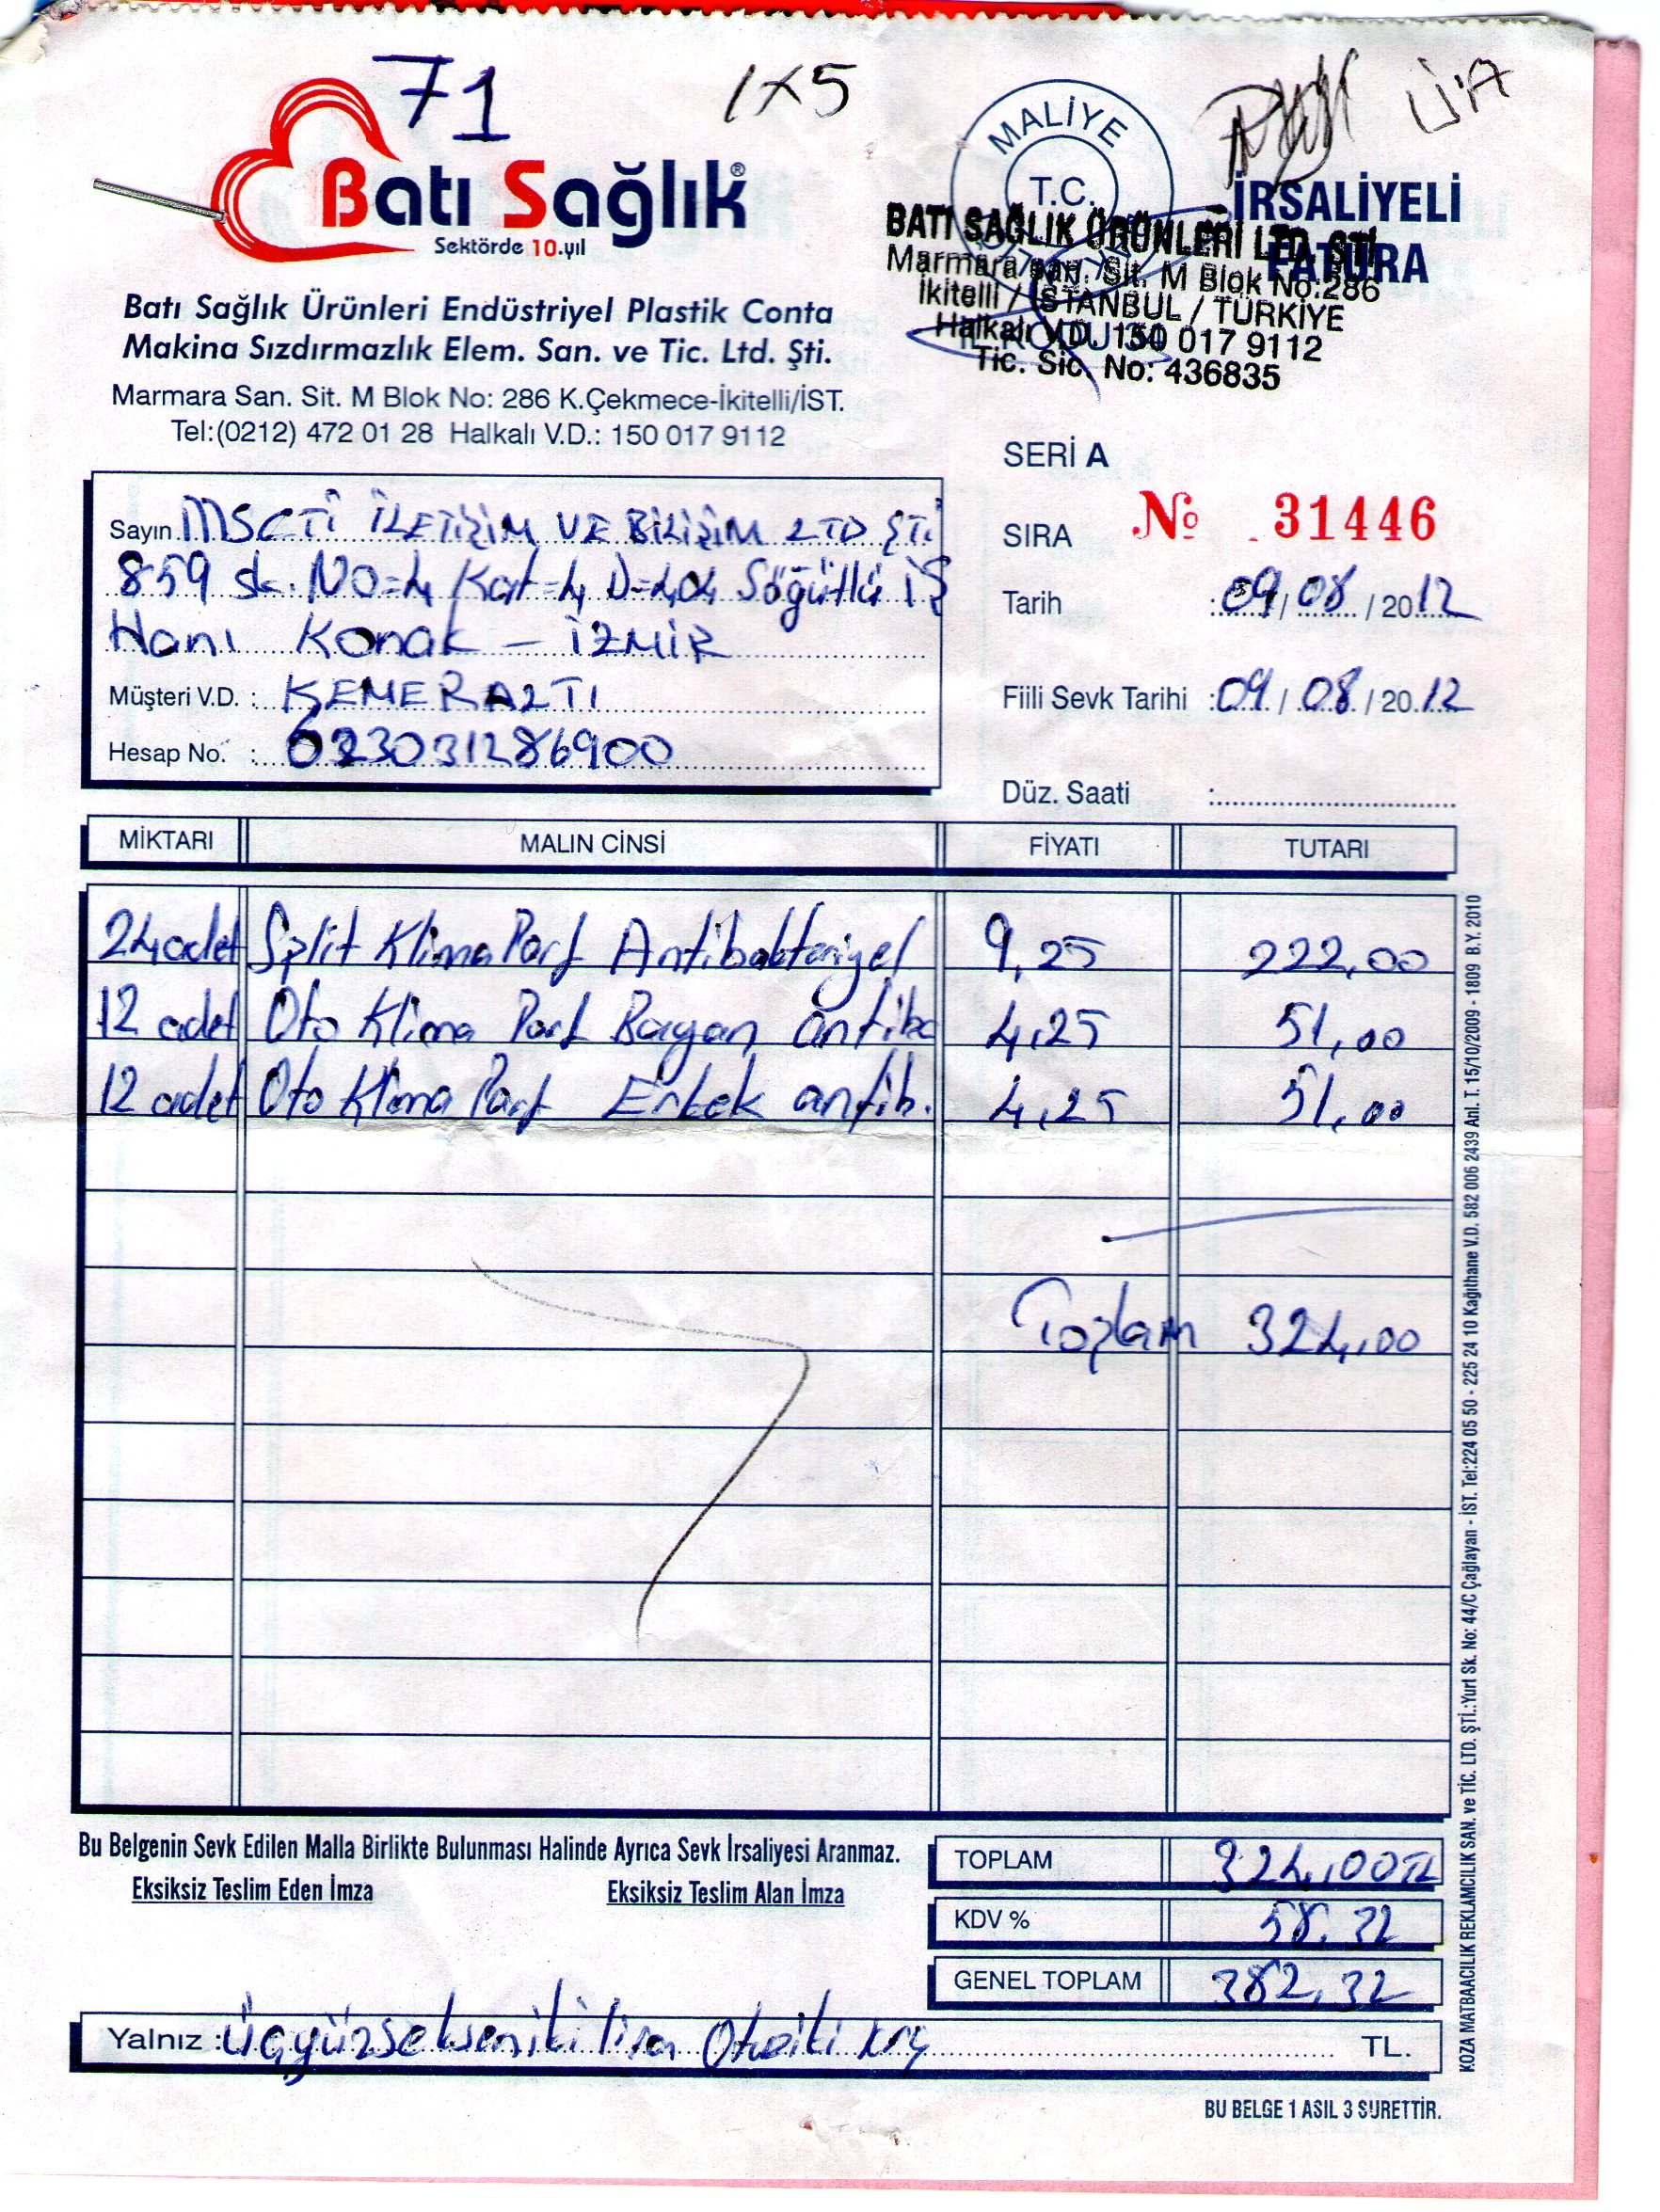 71
1x5
Batı Sağlık®
Sektörde 10.yıl
Batı Sağlık Ürünleri Endüstriyel Plastik Conta
Makina Sızdırmazlık Elem. San. ve Tic. Ltd. Şti.
Marmara San. Sit. M Blok No: 286 K.Çekmece-İkitelli/İST.
Tel:(0212) 472 01 28 Halkalı V.D.: 150 017 9112
MALİYE
T.C.
İRSALİYELİ
FATURA
BATI SAĞLIK ÜRÜNLERİ LTD. ŞTİ.
Marmara San. Sit. M Blok No:286
İkitelli / İSTANBUL / TÜRKİYE
Halkalı V.D. 150 017 9112
Tic. Sic. No: 436835
SERİ A
SIRA No 31446
Tarih : 09 / 08 / 2012
Fiili Sevk Tarihi : 09 / 08 / 2012
Düz. Saati :
Sayın MSCTİ İLETİŞİM VE BİLİŞİM LTD ŞTİ.
859 sk. NO=4 Kat=4 D=404 Söğütlü İŞ
Hanı Konak - İZMİR
Müşteri V.D. : KEMERALTI
Hesap No. : 623031286900
MİKTARI MALIN CİNSİ FİYATI TUTARI
24 adet Split Klima Parf Antibakteriyel 9,25 222,00
12 adet Oto Klima Parf Bayan antiba 4,25 51,00
12 adet Oto Klima Parf Erkek antib. 4,25 51,00
Toplam 324,00
Bu Belgenin Sevk Edilen Malla Birlikte Bulunması Halinde Ayrıca Sevk İrsaliyesi Aranmaz.
Eksiksiz Teslim Eden İmza Eksiksiz Teslim Alan İmza
TOPLAM 324,00TL
KDV % 58,32
GENEL TOPLAM 382,32
Yalnız : Üçyüzsekseniki lira Otuziki krş TL.
BU BELGE 1 ASIL 3 SURETTİR.
KOZA MATBAACILIK REKLAMCILIK SAN. ve TİC. LTD. ŞTİ.:Yurt Sk. No: 44/C Çağlayan - İST. Tel:224 05 50 - 225 24 10 Kağıthane V.D. 582 006 2439 Anl. T. 15/10/2009 - 1809 B.Y. 2010